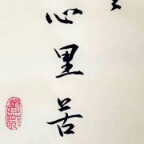 心里苦